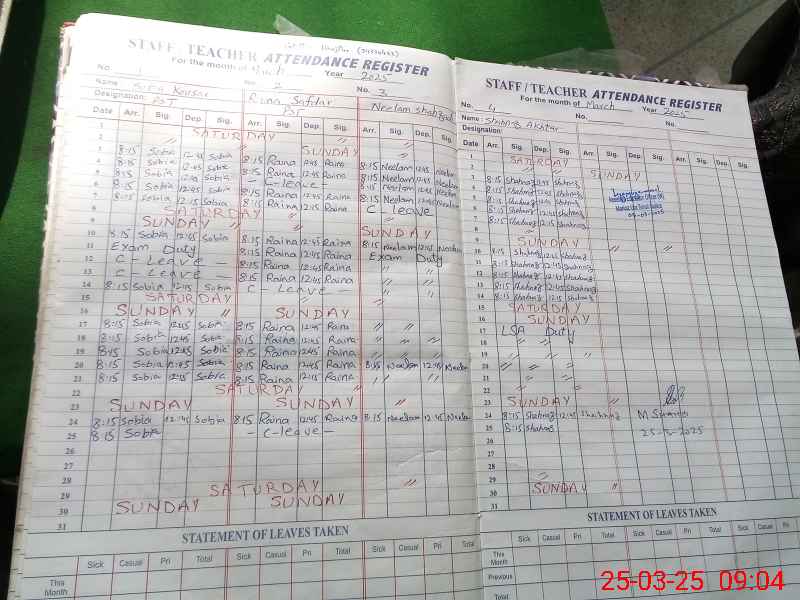 STAFF / TEACHER ATTENDANCE REGISTER
For the month of March Year 2025
No. 1 No. 2 No. 3
Name Sobia Kousar Raina Safdar Neelam Shahzadi
Designation: PST PST
Date Arr. Sig. Dep. Sig. Arr. Sig. Dep. Sig. Arr. Sig. Dep. Sig.
1 SATURDAY
2 SUNDAY
3 8:15 Sobia 12:45 Sobia 8:15 Raina 12:45 Raina 8:15 Neelam 12:45 Neelam
4 8:15 Sobia 12:45 Sobia 8:15 Raina 12:45 Raina 8:15 Neelam 12:45 Neelam
5 8:15 Sobia 12:45 Sobia - C-leave - 8:15 Neelam 12:45 Neelam
6 8:15 Sobia 12:45 Sobia 8:15 Raina 12:45 Raina 8:15 Neelam 12:45 Neelam
7 8:15 Sobia 12:15 Sobia 8:15 Raina 12:15 Raina C-leave
8 SATURDAY
9 SUNDAY SUNDAY
10 8:15 Sobia 12:45 Sobia 8:15 Raina 12:45 Raina 8:15 Neelam 12:45 Neelam
11 Exam Duty 8:15 Raina 12:45 Raina Exam Duty
12 C-Leave - 8:15 Raina 12:45 Raina // //
13 C-Leave - 8:15 Raina 12:45 Raina // //
14 8:15 Sobia 12:15 Sobia C-Leave - // //
15 SATURDAY //
16 SUNDAY // SUNDAY
17 8:15 Sobia 12:45 Sobia 8:15 Raina 12:45 Raina // //
18 8:15 Sobia 12:45 Sobia 8:15 Raina 12:45 Raina // //
19 8:15 Sobia 12:45 Sobia 8:15 Raina 12:45 Raina // //
20 8:15 Sobia 12:45 Sobia 8:15 Raina 12:45 Raina 8:15 Neelam 12:45 Neelam
21 8:15 Sobia 12:15 Sobia 8:15 Raina 12:15 Raina // //
22 SATURDAY //
23 SUNDAY SUNDAY //
24 8:15 Sobia 12:45 Sobia 8:15 Raina 12:45 Raina 8:15 Neelam 12:45 Neelam
25 8:15 Sobia - C-leave -
26
27
28
29 SATURDAY //
30 SUNDAY SUNDAY
31
STATEMENT OF LEAVES TAKEN
Sick Casual Pri Total Sick Casual Pri Total Sick Casual Pri Total
This Month
STAFF / TEACHER ATTENDANCE REGISTER
For the month of March Year 2025
No. 4 No. No.
Name: Shahnaz Akhtar
Designation:
Date Arr. Sig. Dep. Sig. Arr. Sig. Dep. Sig. Arr. Sig. Dep. Sig.
1 SATURDAY //
2 // SUNDAY
3 8:15 Shahnaz 12:45 Shahnaz
4 8:15 Shahnaz 12:45 Shahnaz
5 8:15 Shahnaz 12:45 Shahnaz
6 8:15 Shahnaz 12:45 Shahnaz
7 8:15 Shahnaz 12:15 Shahnaz
8 //
9 SUNDAY // //
10 8:15 Shahnaz 12:45 Shahnaz
11 8:15 Shahnaz 12:45 Shahnaz
12 8:15 Shahnaz 12:45 Shahnaz
13 8:15 Shahnaz 12:45 Shahnaz
14 8:15 Shahnaz 12:15 Shahnaz
15 SATURDAY //
16 SUNDAY //
17 LSA Duty
18 // //
19 // //
20 // //
21 // //
22 //
23 SUNDAY //
24 8:15 Shahnaz 12:45 Shahnaz
25 8:15 Shahnaz
26
27
28
29 //
30 SUNDAY //
31
STATEMENT OF LEAVES TAKEN
Sick Casual Pri Total Sick Casual Pri Total Sick Casual Pri Total
This Month
Previous
Total
25-03-25 09:04